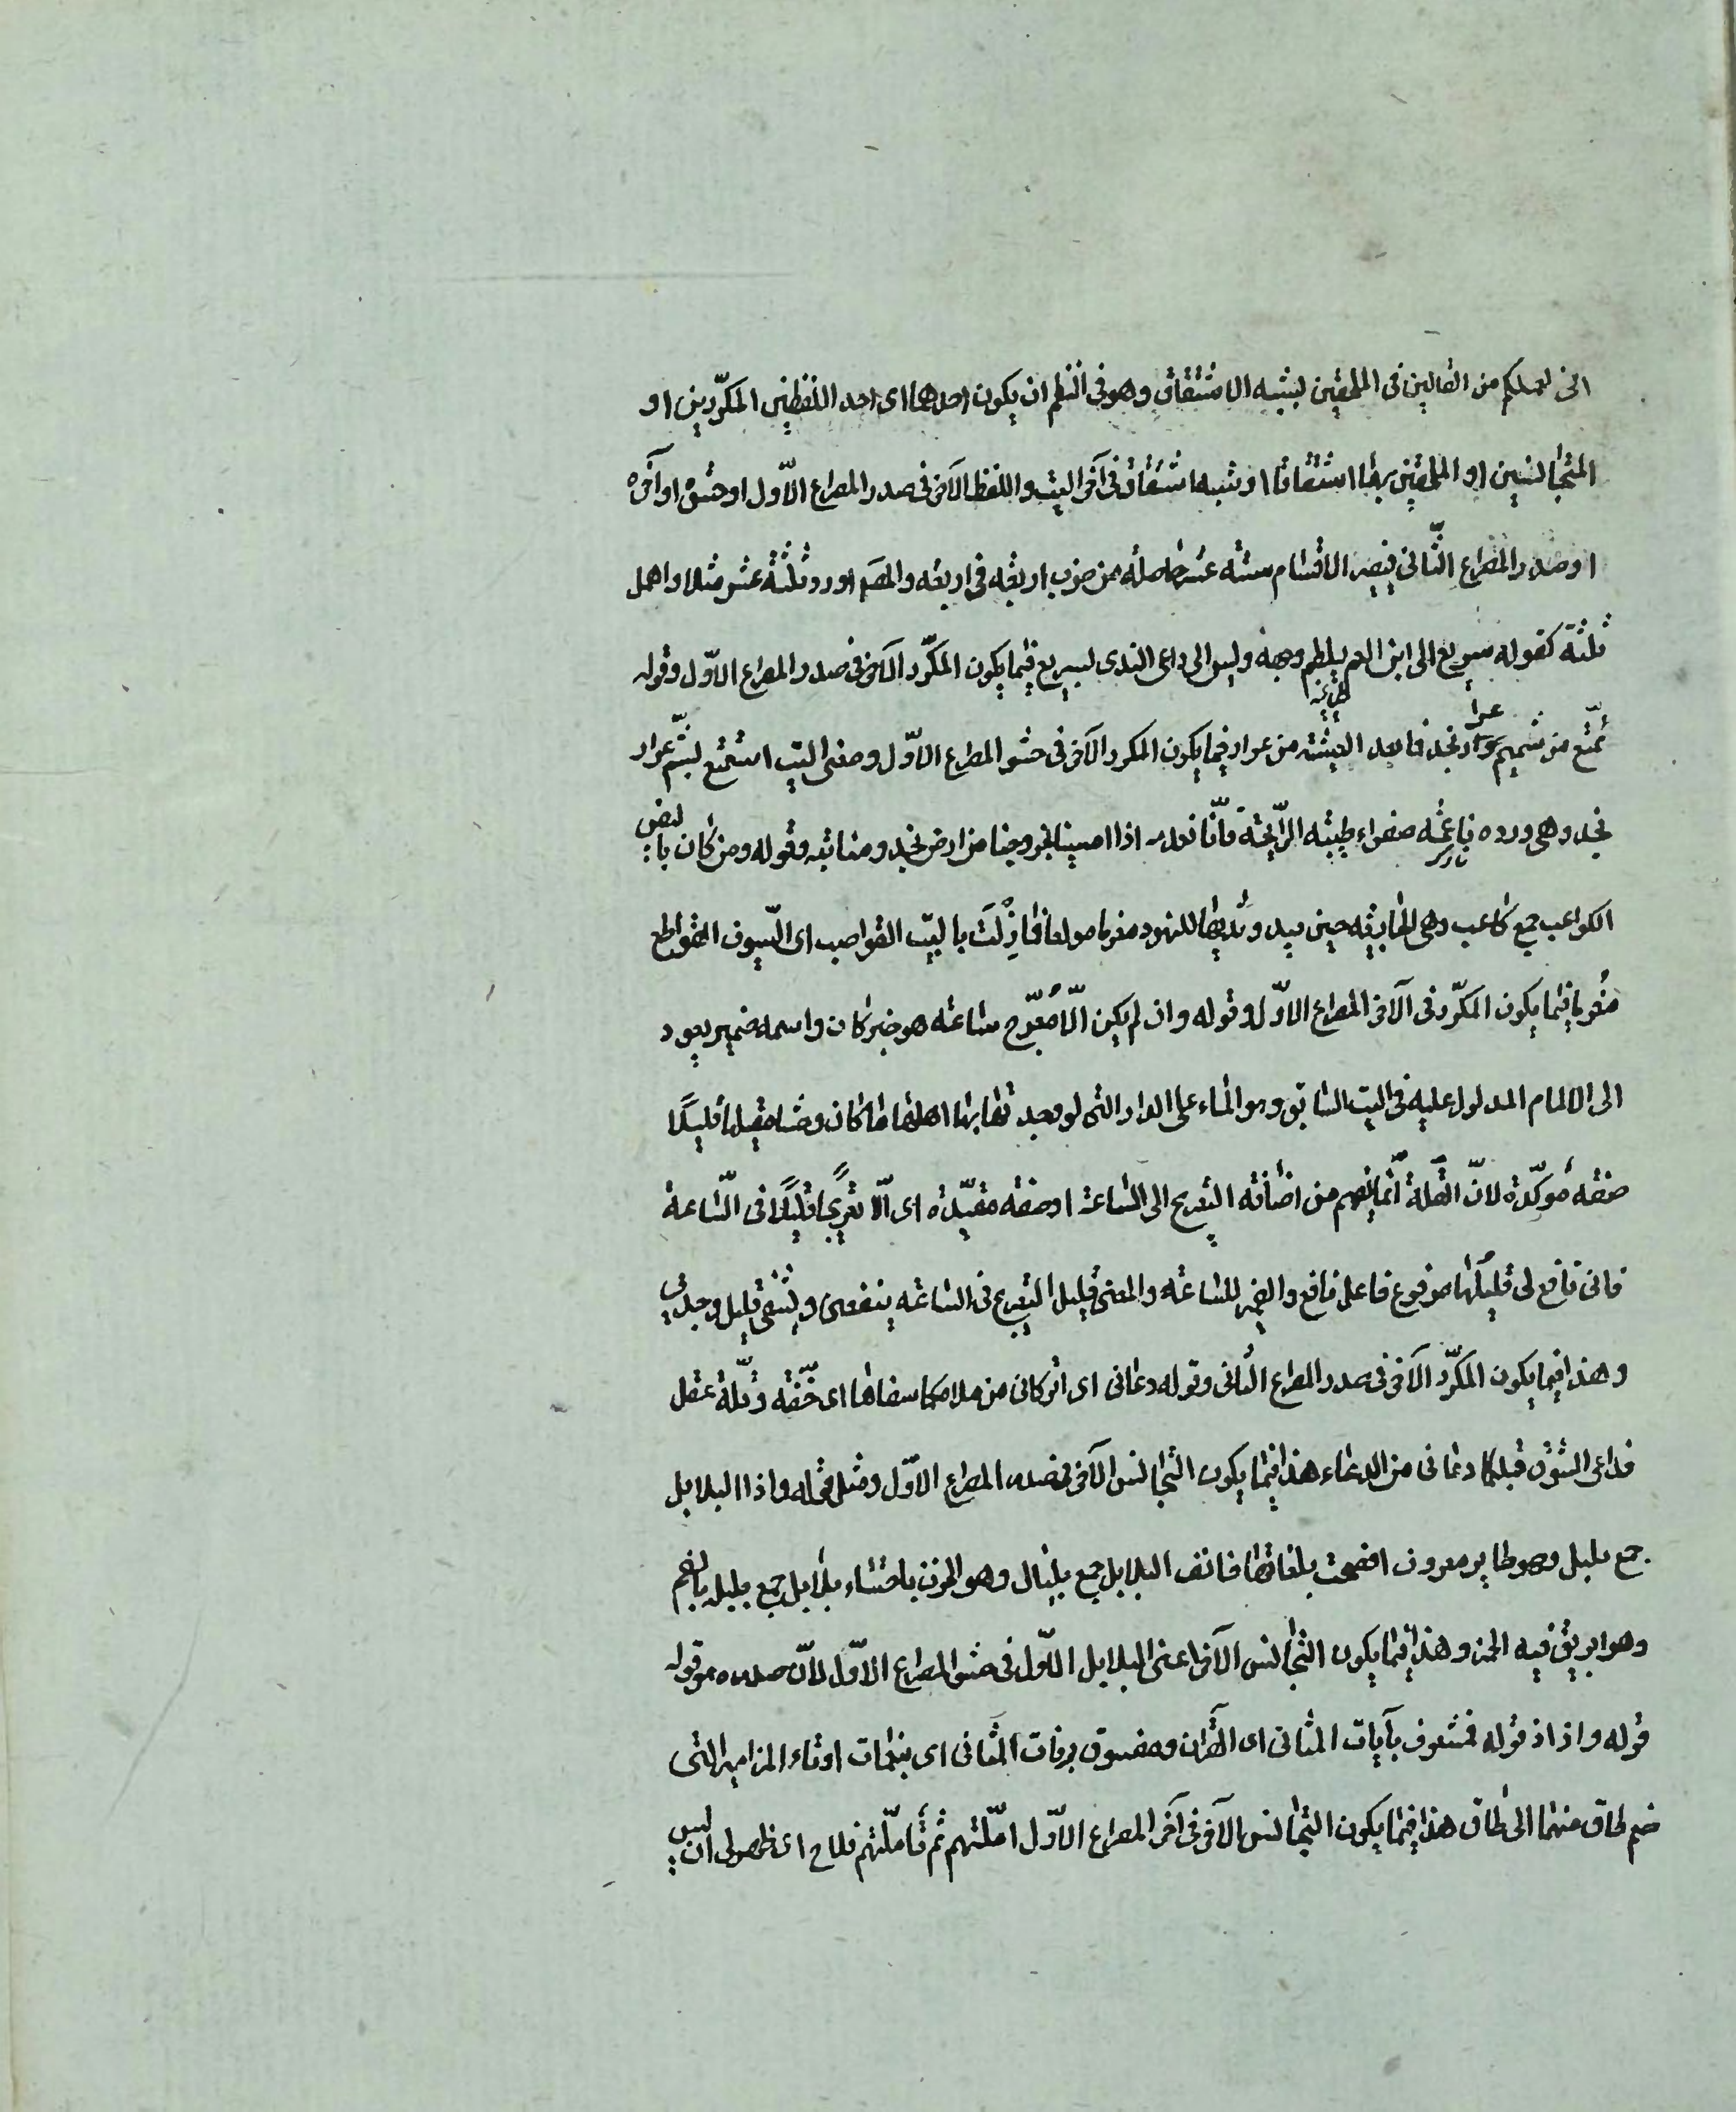 انى لعملكم من القالين فى الملحقين بشبه الاشتقاق وهو فى النظم ان يكون احدهما اى احد اللفظين المكررين او
المتجانسين او الملحقين بهما اشتقاقا او شبه اشتقاق فى آخر البيت واللفظ الآخر فى صدر المصراع الاوّل او حشوه او آخره
او صدر المصراع الثّانى فيصير الاقسام ستة عشر حاصلة من ضرب اربعة فى اربعة والمصم اورد ثلثة عشر مثلا واهمل
ثلثة كقوله سريع الى ابن العم يلطم وجهه وليس الى داعى الندى بسريع فيما يكون المكرّر الآخر فى صدر المصراع الاوّل وقوله
تمتّع من شميم عرار نجد فما بعد العشية من عرار فيما يكون المكرر الآخر فى حشو المصراع الاوّل ومعنى البيت استمتع بشمّ عرار
نجد وهى ورده ناعمة صفراء طيبة الرّايحة فانّا نعدمه اذا امسينا بخروجنا من ارض نجد ومنابته وقوله ومن كان بالبيض
الكواعب جمع كاعب وهى الجارية حين يبدو ثديها للنهود مغرما مولعا فما زلت بالبيض القواضب اى السّيوف القواطع
مغرما فيما يكون المكرّر فى الآخر المصراع الاوّل وقوله وان لم يكن الّا معرّج ساعة هو خبر كان واسمه ضمير يعود
الى الالمام المدلول عليه فى البيت السابق وهو الماء على الدار التى لو وجد تها بها اهلها ما كان وحشا مقيلها قليلًا
صفة مؤكّدة لانّ القلة انّما يفهم من اضافة التعريج الى الساعة او صفة مقيّدة اى الّا تعريجًا قليلًا فى السّاعة
فانى نافع لى قليلها مرفوع فاعل نافع والضمير للساعة والمعنى قليل التعريج فى الساعة ينفعنى ويشفى غليل وجدى
وهذا فيما يكون المكرّر الآخر فى صدر المصراع الثانى وقوله دعانى اى اتركانى من ملامكما سفاها اى خفّة وقلّة عقل
فداعى الشوق قبلكما دعانى من الدعاء هذا فيما يكون المتجانس الآخر فى صدر المصراع الاوّل ومثل قوله واذا البلابل
جمع بلبل وهو طاير معروف افصحت بلغاتها فانف البلابل جمع بلبال وهو الحزن باحتساء بلابل جمع بلبله بالضم
وهو ابريق فيه الخمر وهذا فيما يكون المتجانس الآخر اعنى البلابل الاوّل فى حشو المصراع الاوّل لانّ صدره هو قوله
قوله واذا ذ قوله فمشعوف بآيات المثانى اى القرآن ومفتون برنات المثانى اى بنغمات اوتاء المزامير التى
ضم طاق منهما الى طاق هذا فيما يكون المتجانس الآخر فى آخر المصراع الاوّل امّلتهم ثم تأملتهم فلاح اى ظهر لى ان ليس